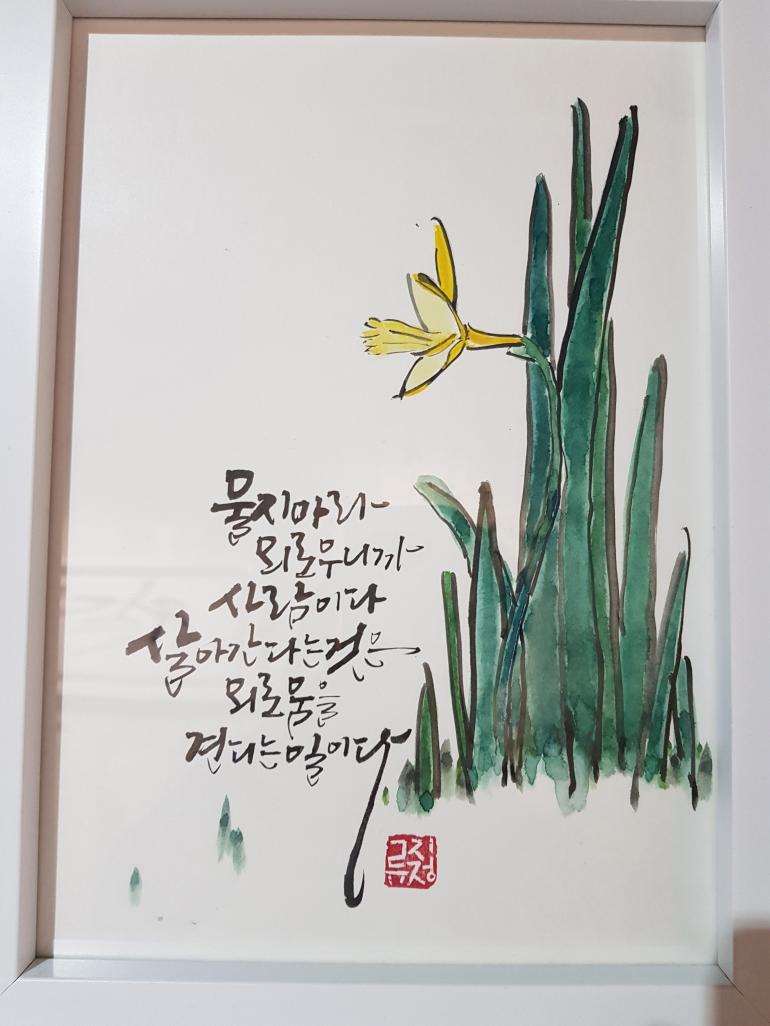 물지마라
외로우니까
사람이다
살아간다는것은
외로움을
견디는일이다